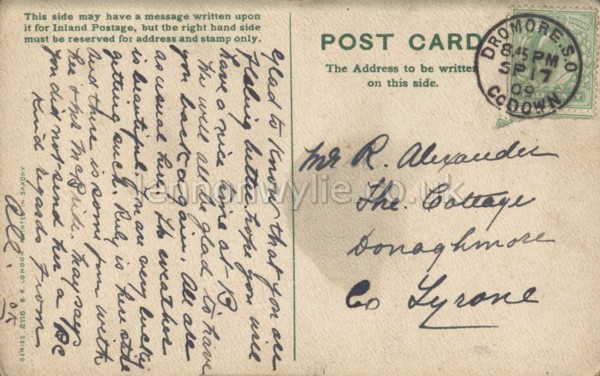 This side may have a message written upon
it for Inland Postage, but the right hand side
must be reserved for address and stamp only.
Glad to know that you are
feeling better hope you will
have a nice time at B
We will all be glad to have
you back again. All are
as usual here. The weather
is beautiful. You are very lucky
getting such. Ruby is here still
and there is some fun with
her & Mrs McBride. May says
you did not send her a PC
Kind regards from
All.
POST CARD
The Address to be written
on this side.
DROMORE S.O
8.45 PM
SP 17
09
Co DOWN
Mr R. Alexander
The Cottage
Donaghmore
Co Tyrone
lennonwylie.co.uk
SERIES 2116 B.B. LONDON. PRINTED IN SAXONY